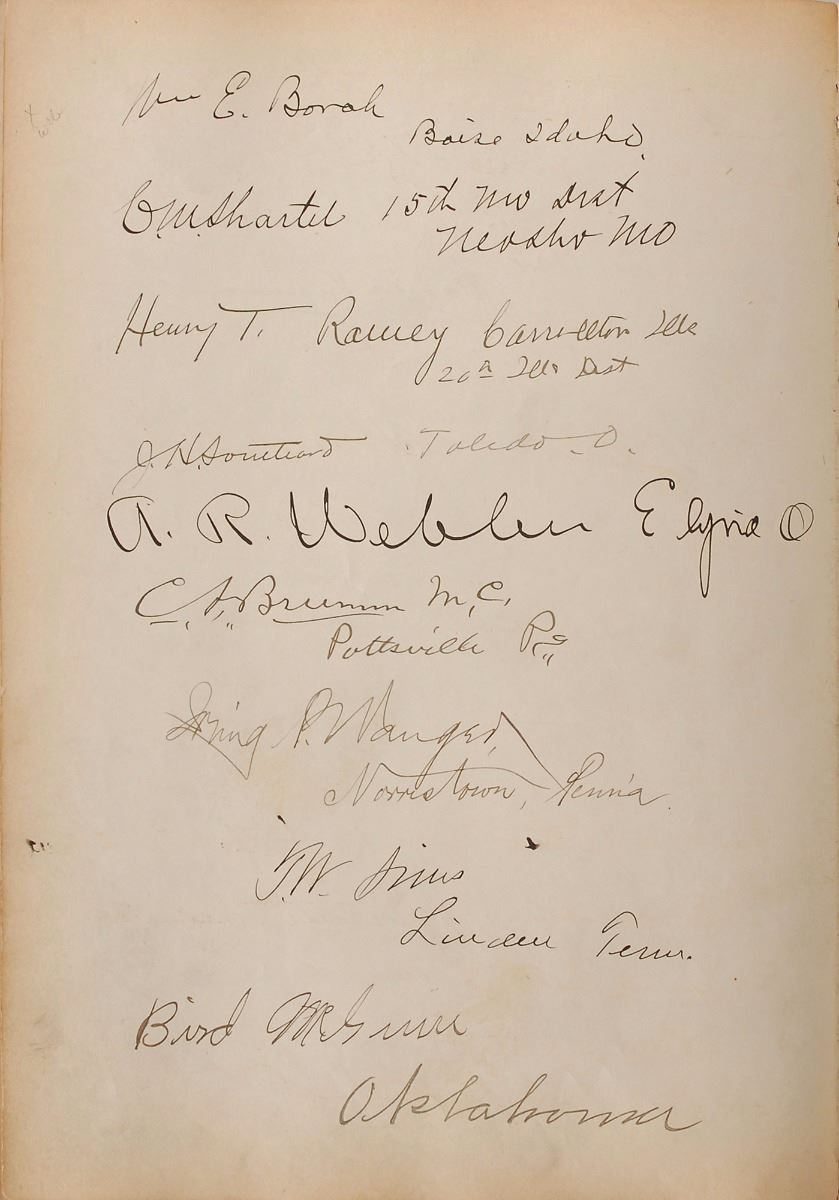 Wm E. Borah
Boise Idaho
C.M. Shartel 15th Mo Dist
Neosho MO
Henry T. Rainey Carrollton Ills
20th Ills Dist
J.H. Southard Toledo - O.
A. R. Webber Elyria O
C. N. Brumm M.C.
Pottsville Pa
Irving P. Wanger,
Norristown, Penn'a.
T.W. Sims
Linden Tenn.
Bird McGuire
Oklahoma